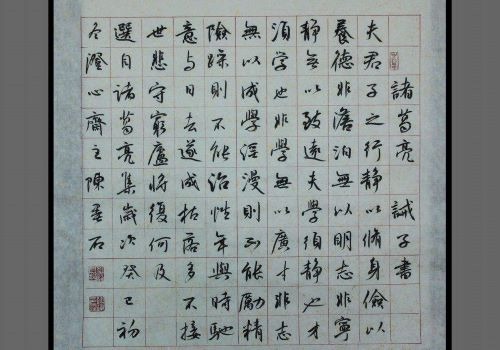 諸葛亮 誡子書
夫君子之行靜以脩身儉以
養德非澹泊無以明志非寧
靜無以致遠夫學須靜也才
須學也非學無以廣才非志
無以成學淫漫則不能勵精
險躁則不能治性年與時馳
意與日去遂成枯落多不接
世悲守窮廬將復何及
選自諸葛亮集歲次癸巳初
冬澄心齋主陳石